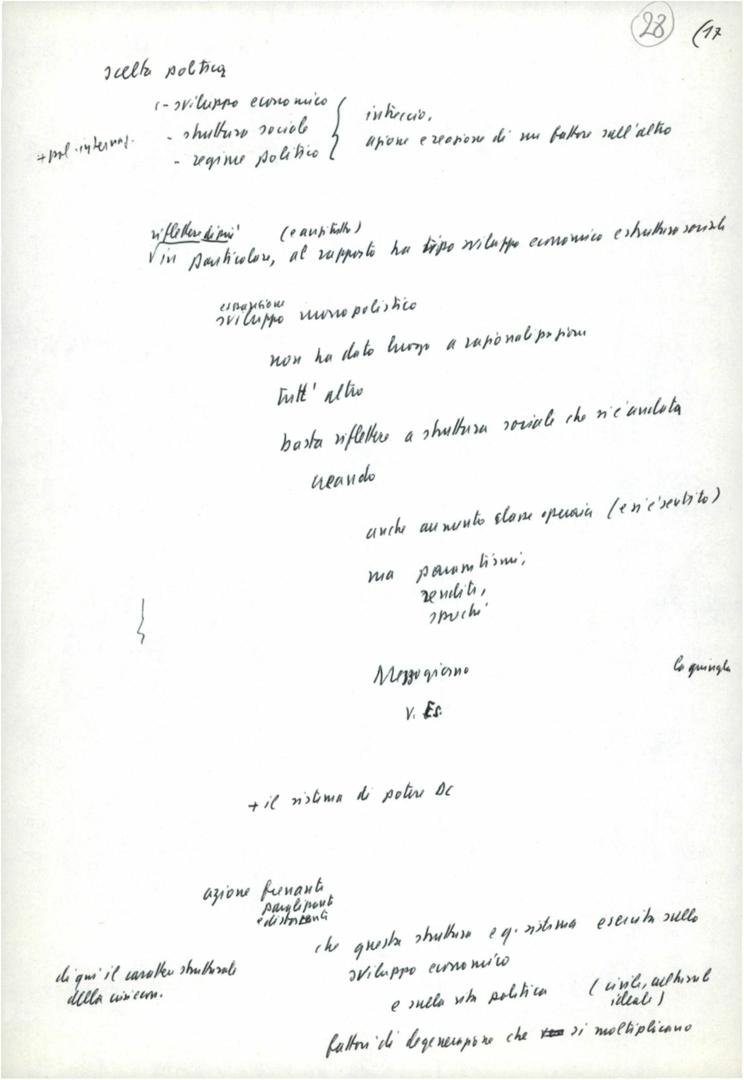 28 (17
scelta politica
- sviluppo economico
- struttura sociale
- regime politico
+ pol. internaz.
intreccio,
azione e reazione di un fattore sull'altro
riflettere di più (e anzitutto)
in particolare, al rapporto tra tipo sviluppo economico e struttura sociale
espansione
sviluppo monopolistico
non ha dato luogo a razionalizzazioni
tutt'altro
basta riflettere a struttura sociale che si è andata
creando
anche aumento classe operaia (e si è sentito)
ma parassitismi,
rendite,
sprechi
Mezzogiorno
la giungla
V. Es.
+ il sistema di potere DC
azione frenante
paralizzante
e distorcente
che questa struttura e q. sistema esercita sullo
sviluppo economico
di qui il carattere strutturale
della crisi econ.
e sulla vita politica (civile, culturale
ideale)
fattori di degenerazione che si moltiplicano